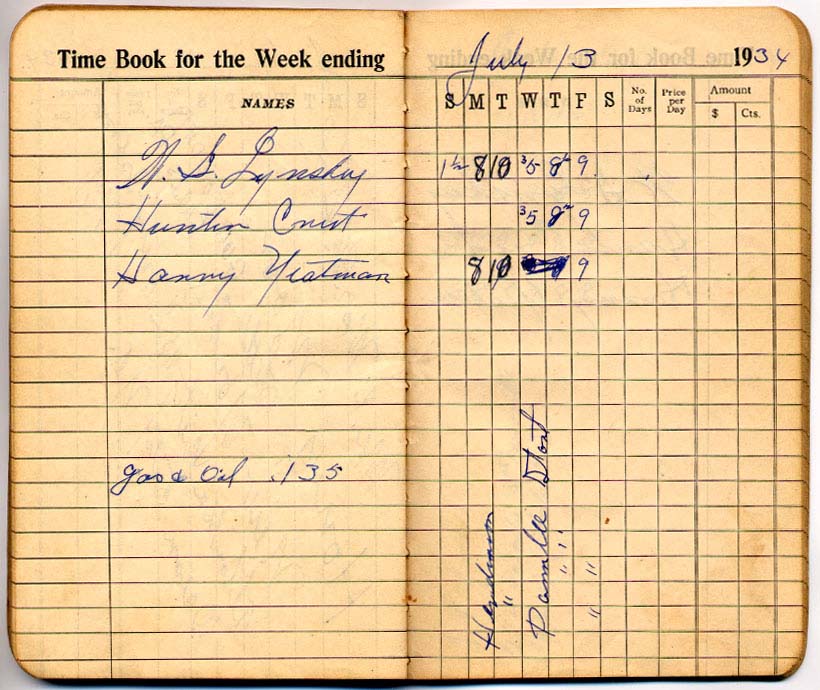 Time Book for the Week ending July 13 1934
NAMES S M T W T F S No. of Days Price per Day Amount $ Cts.
W. S. Lynskey 1½ 8 10 ³5 8² 9
Hunter ³5 8² 9
Hanny Yeatman 8 10 9
gas & Oil .135
Henderson
"
Parmlee Start
" "
" "